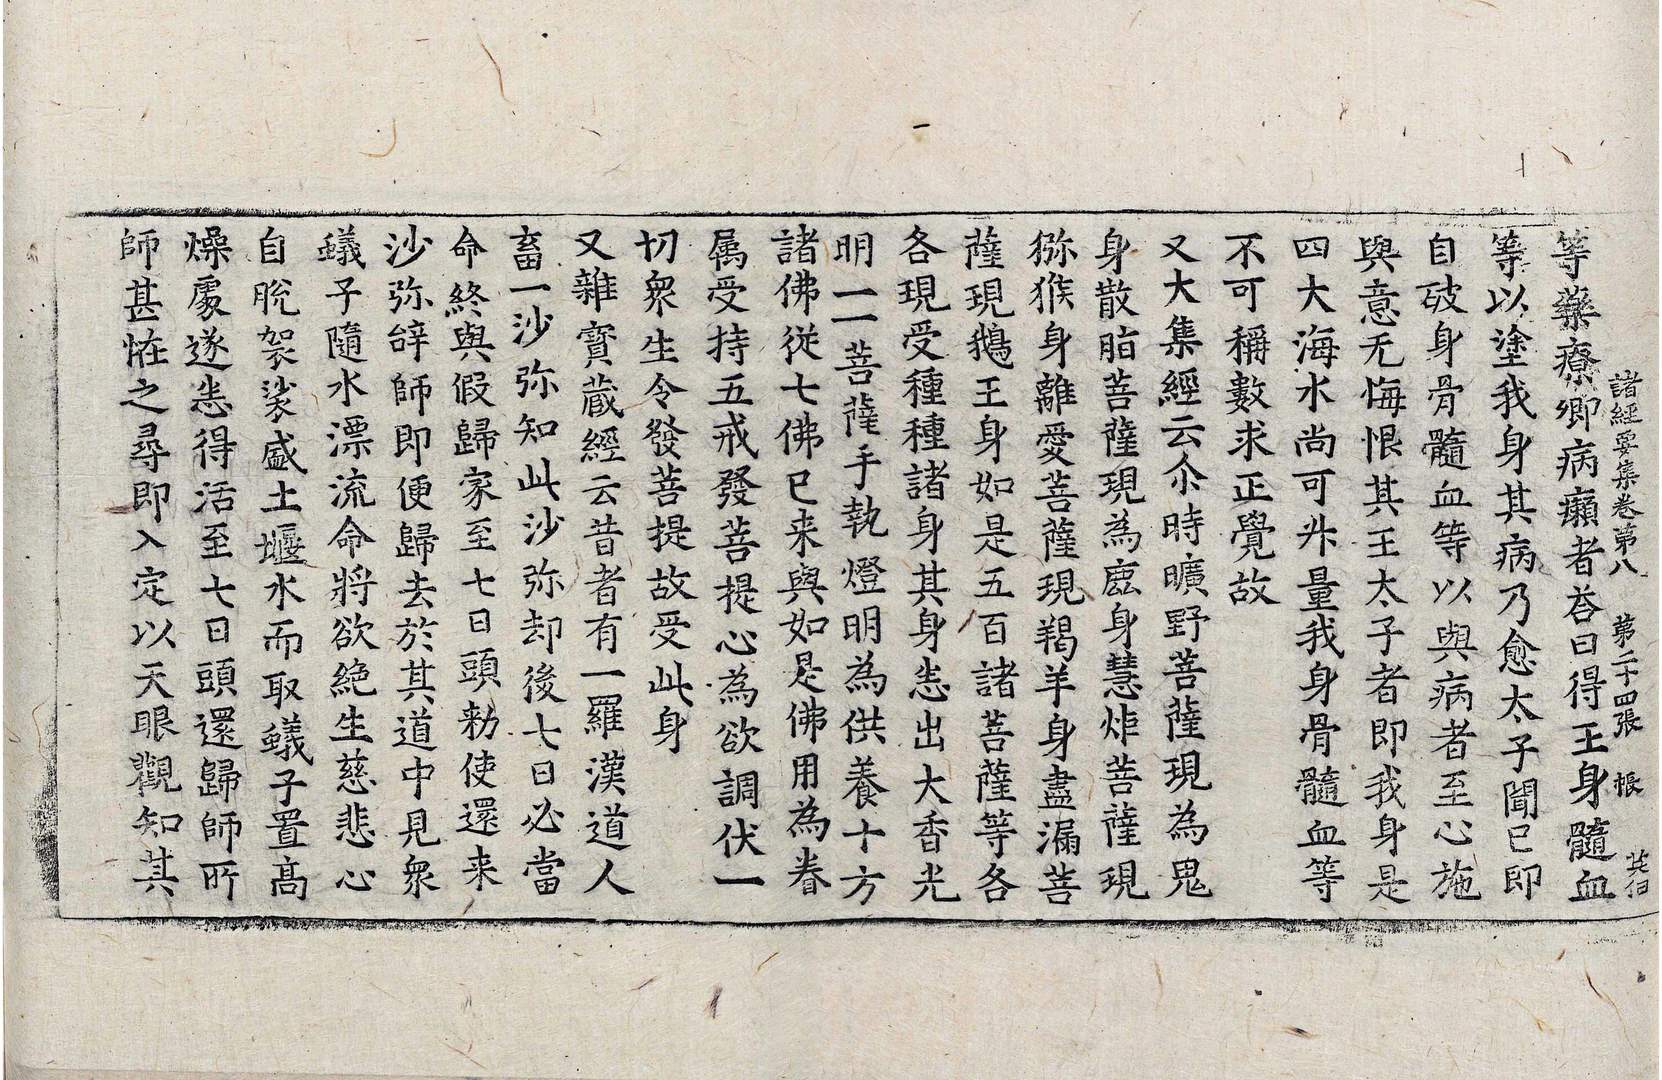 諸經要集卷第八　第二十四張　帳
等藥療卿病癩者荅曰得王身髓血
等以塗我身其病乃愈太子聞已即
自破身骨髓血等以與病者至心施
與意无悔恨其王太子者即我身是
四大海水尚可升量我身骨髓血等
不可稱數求正覺故
又大集經云尒時曠野菩薩現為鬼
身散脂菩薩現為鹿身慧炬菩薩現
獼猴身離愛菩薩現羯羊身盡漏菩
薩現鵝王身如是五百諸菩薩等各
各現受種種諸身其身悉出大香光
明一一菩薩手執燈明為供養十方
諸佛從七佛已来與如是佛用為眷
属受持五戒發菩提心為欲調伏一
切衆生令發菩提故受此身
又雜寶藏經云昔者有一羅漢道人
畜一沙弥知此沙弥却後七日必當
命終與假歸家至七日頭勑使還来
沙弥辝師即便歸去於其道中見衆
蟻子隨水漂流命將欲絶生慈悲心
自脫袈裟盛土堰水而取蟻子置高
燥處遂悉得活至七日頭還歸師所
師甚恠之尋即入定以天眼觀知其